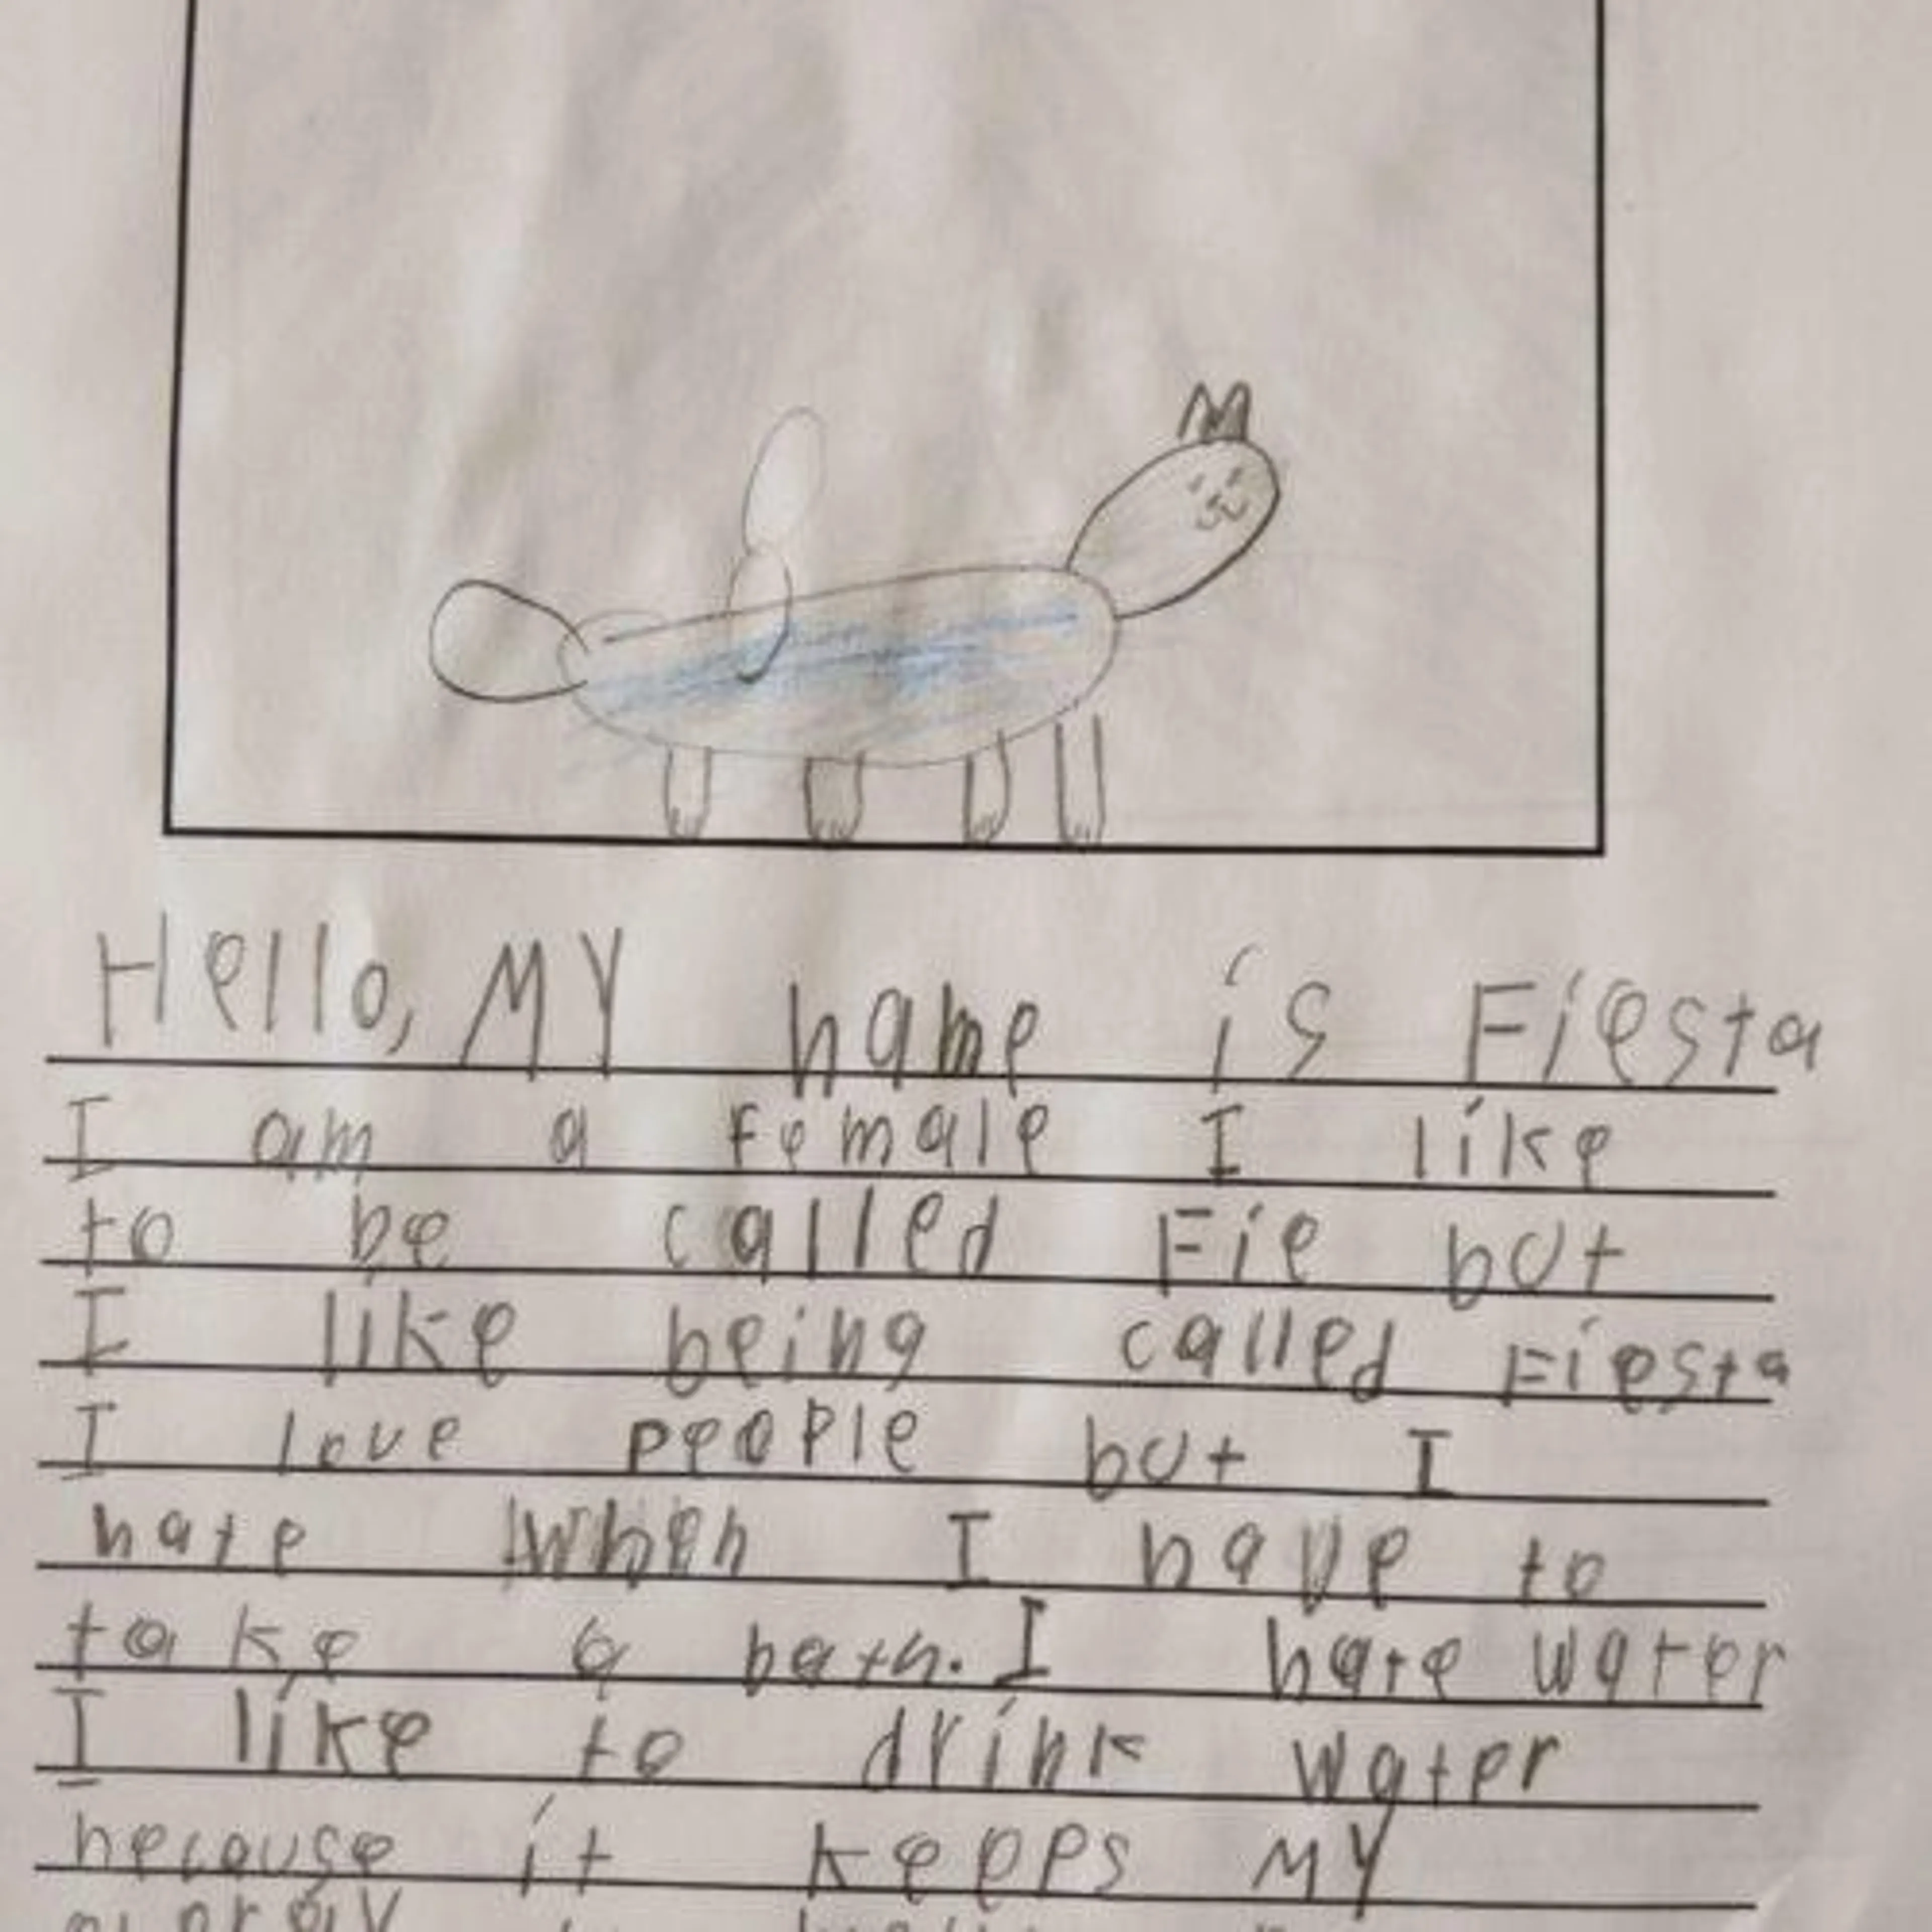 Hello, MY name is Fiesta
I am a female I like
to be called Fie but
I like being called Fiesta
I love people but I
hate when I have to
take a bath. I hate water
I like to drink water
because it keeps MY